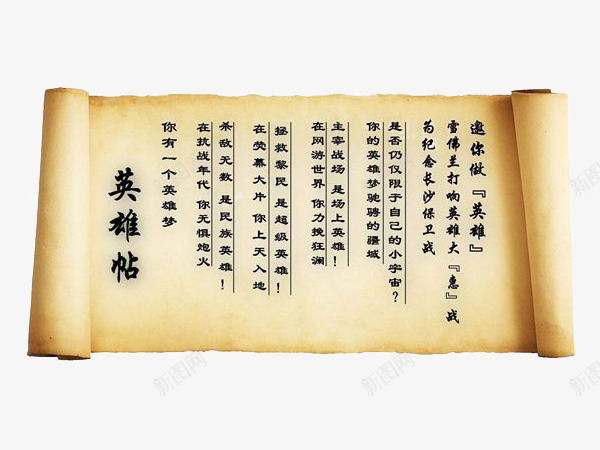 英雄帖
你有一个英雄梦
在抗战年代 你无惧炮火
杀敌无数 是民族英雄！
在荧幕大片 你上天入地
拯救黎民 是超级英雄！
在网游世界 你力挽狂澜
主宰战场 是场上英雄！
你的英雄梦驰骋的疆域
是否仍仅限于自己的小宇宙？
为纪念长沙保卫战
雪佛兰打响英雄大『惠』战
邀你做『英雄』
新图网
新图网
新图网